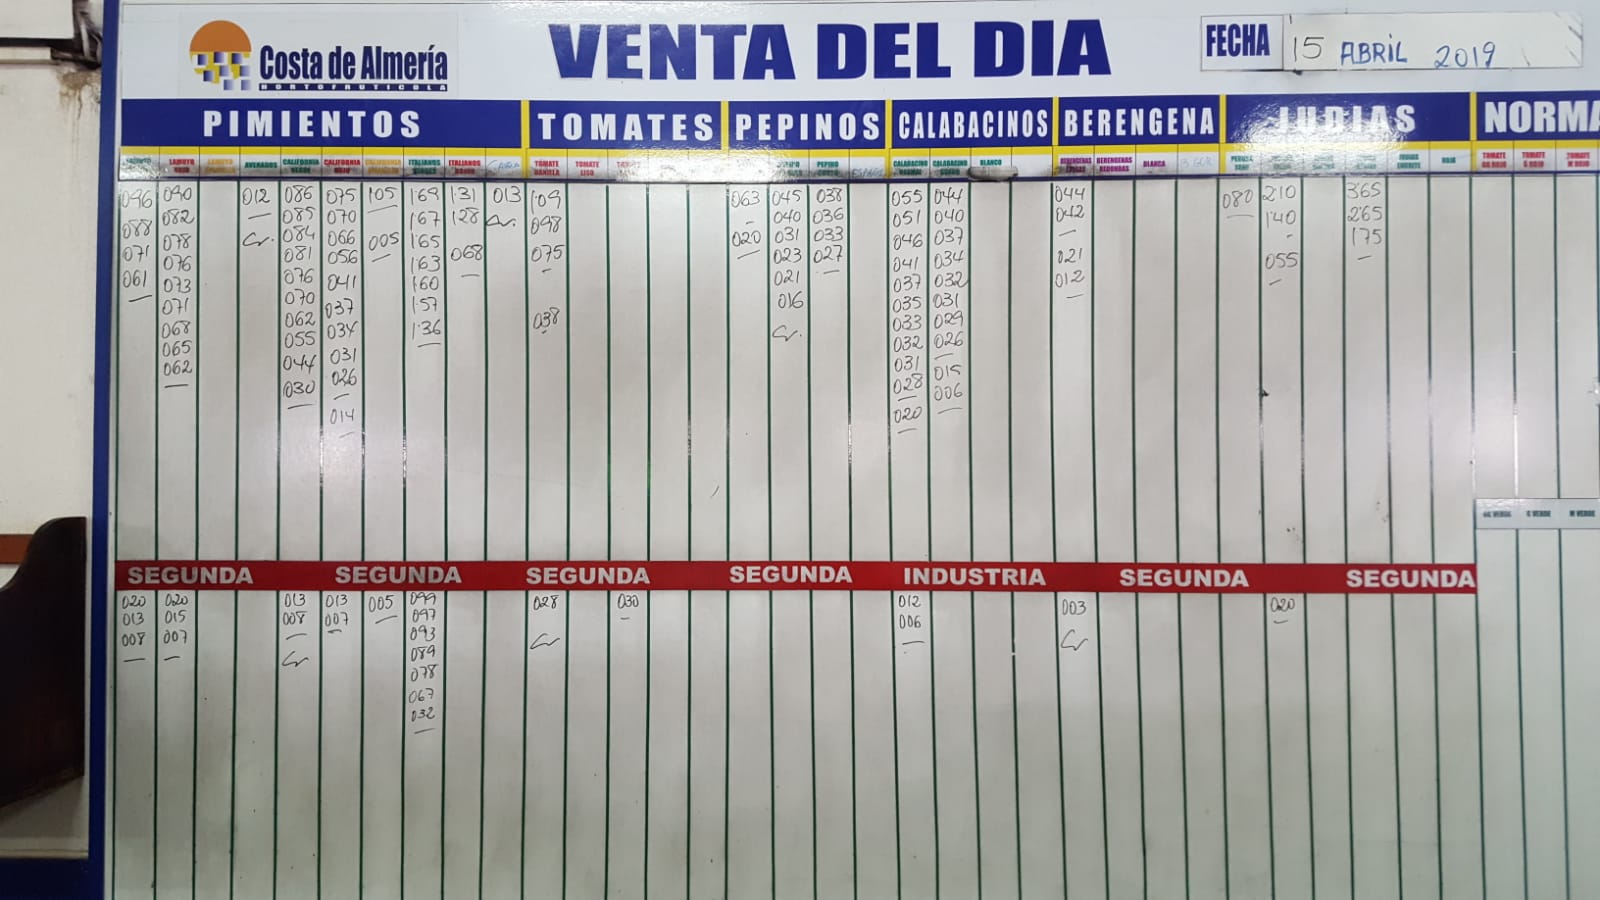 Costa de Almería
HORTOFRUTICOLA
VENTA DEL DIA
FECHA 15 ABRIL 2019
PIMIENTOS TOMATES PEPINOS CALABACINOS BERENGENA JUDIAS NORMA
LAMUYO ROJO AVENADOS CALIFORNIA CALIFORNIA ROJO ITALIANOS ITALIANOS TOMATE DANIELA TOMATE LISO PEPINO CALABACINO CALABACINO BLANCO BERENGENAS BERENGENAS REDONDAS BLANCA ROJA TOMATE TOMATE G ROJO TOMATE M ROJO
096 090 012 086 075 105 1'69 1'31 013 1'09 063 045 038 055 044 044 080 210 365
088 082 085 070 005 1'67 128 098 020 040 036 051 040 042 1'40 265
071 078 084 066 1'65 068 075 031 033 046 037 021 055 175
061 076 081 056 1'63 038 023 027 041 034 012
073 076 041 1'60 021 037 032
071 070 037 1'57 016 035 031
068 062 034 1'36 033 029
065 055 031 032 026
062 044 026 031 015
030 014 028 006
020
GG VERDE G VERDE M VERDE
SEGUNDA SEGUNDA SEGUNDA SEGUNDA INDUSTRIA SEGUNDA SEGUNDA
020 020 013 013 005 099 028 030 012 003 020
013 015 008 007 097 006
008 007 093
089
078
067
032